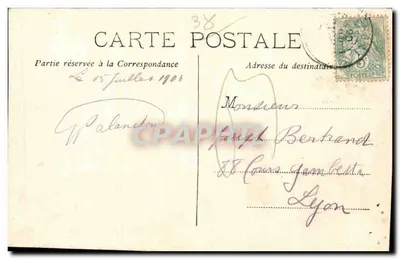 38
CARTE POSTALE
Partie réservée à la Correspondance
Adresse du destinataire
Le 15 Juillet 1906
Monsieur
Joseph Bertrand
88 Cours Gambetta
Lyon
CPARAMA